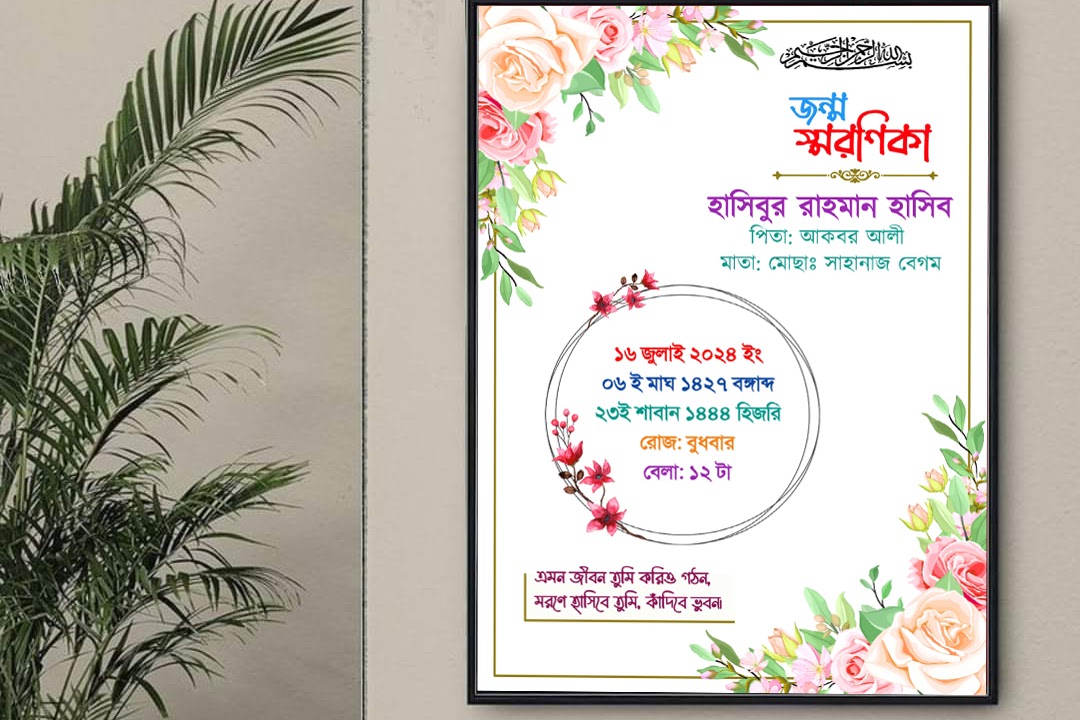 بسم الله الرحمن الرحيم
জন্ম
স্মরণিকা
হাসিবুর রাহমান হাসিব
পিতা: আকবর আলী
মাতা: মোছাঃ সাহানাজ বেগম
১৬ জুলাই ২০২৪ ইং
০৬ ই মাঘ ১৪২৭ বঙ্গাব্দ
২৩ই শাবান ১৪৪৪ হিজরি
রোজ: বুধবার
বেলা: ১২ টা
এমন জীবন তুমি করিও গঠন,
মরণে হাসিবে তুমি, কাঁদিবে ভুবন।